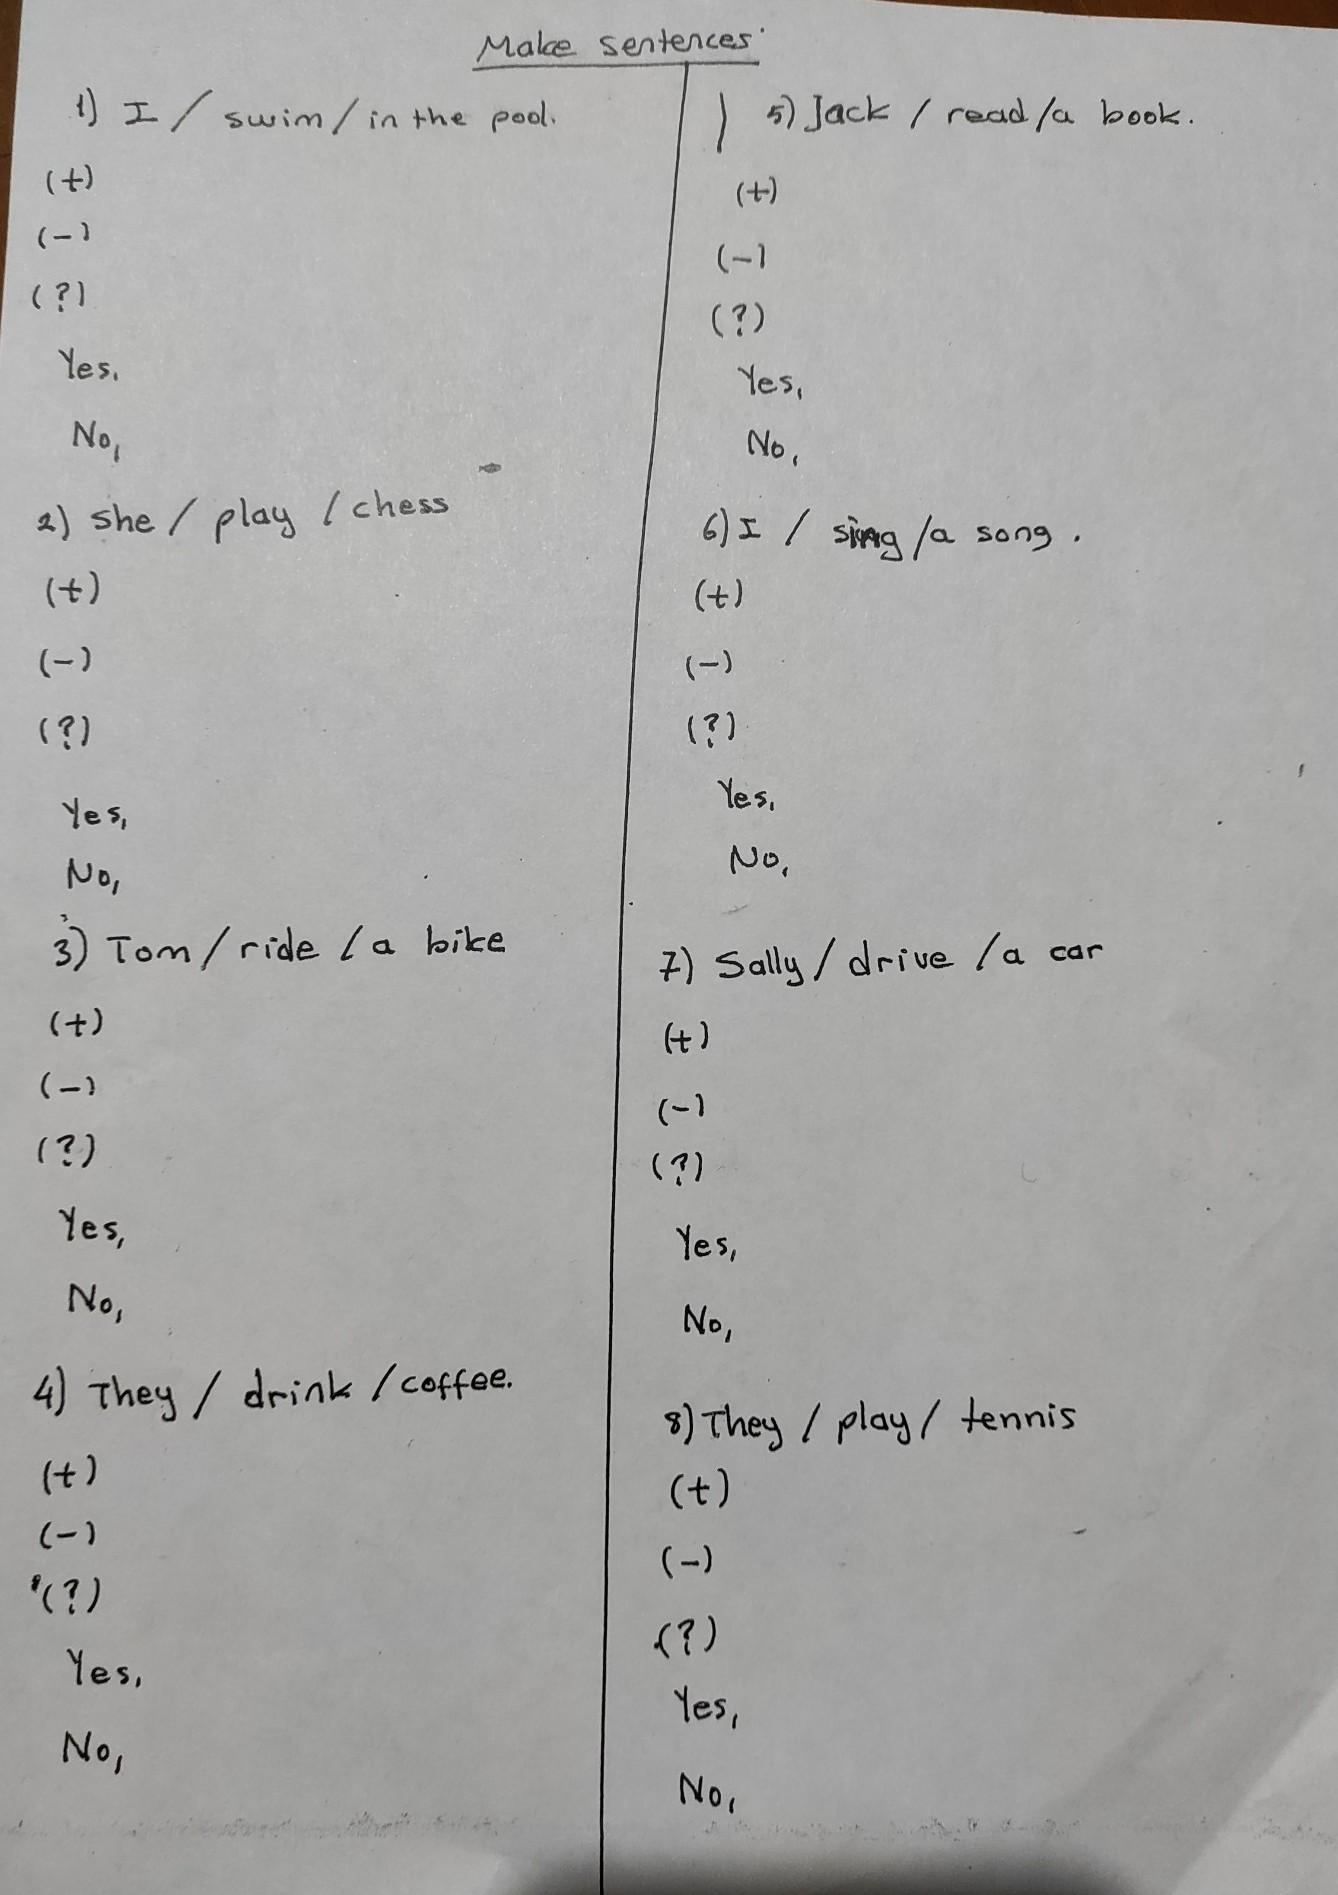 Make sentences
1) I / swim / in the pool.
(+)
(-)
(?)
Yes,
No,
2) she / play / chess
(+)
(-)
(?)
Yes,
No,
3) Tom / ride / a bike
(+)
(-)
(?)
Yes,
No,
4) They / drink / coffee.
(+)
(-)
(?)
Yes,
No,
5) Jack / read / a book.
(+)
(-)
(?)
Yes,
No,
6) I / sing / a song.
(+)
(-)
(?)
Yes,
No,
7) Sally / drive / a car
(+)
(-)
(?)
Yes,
No,
8) They / play / tennis
(+)
(-)
(?)
Yes,
No,